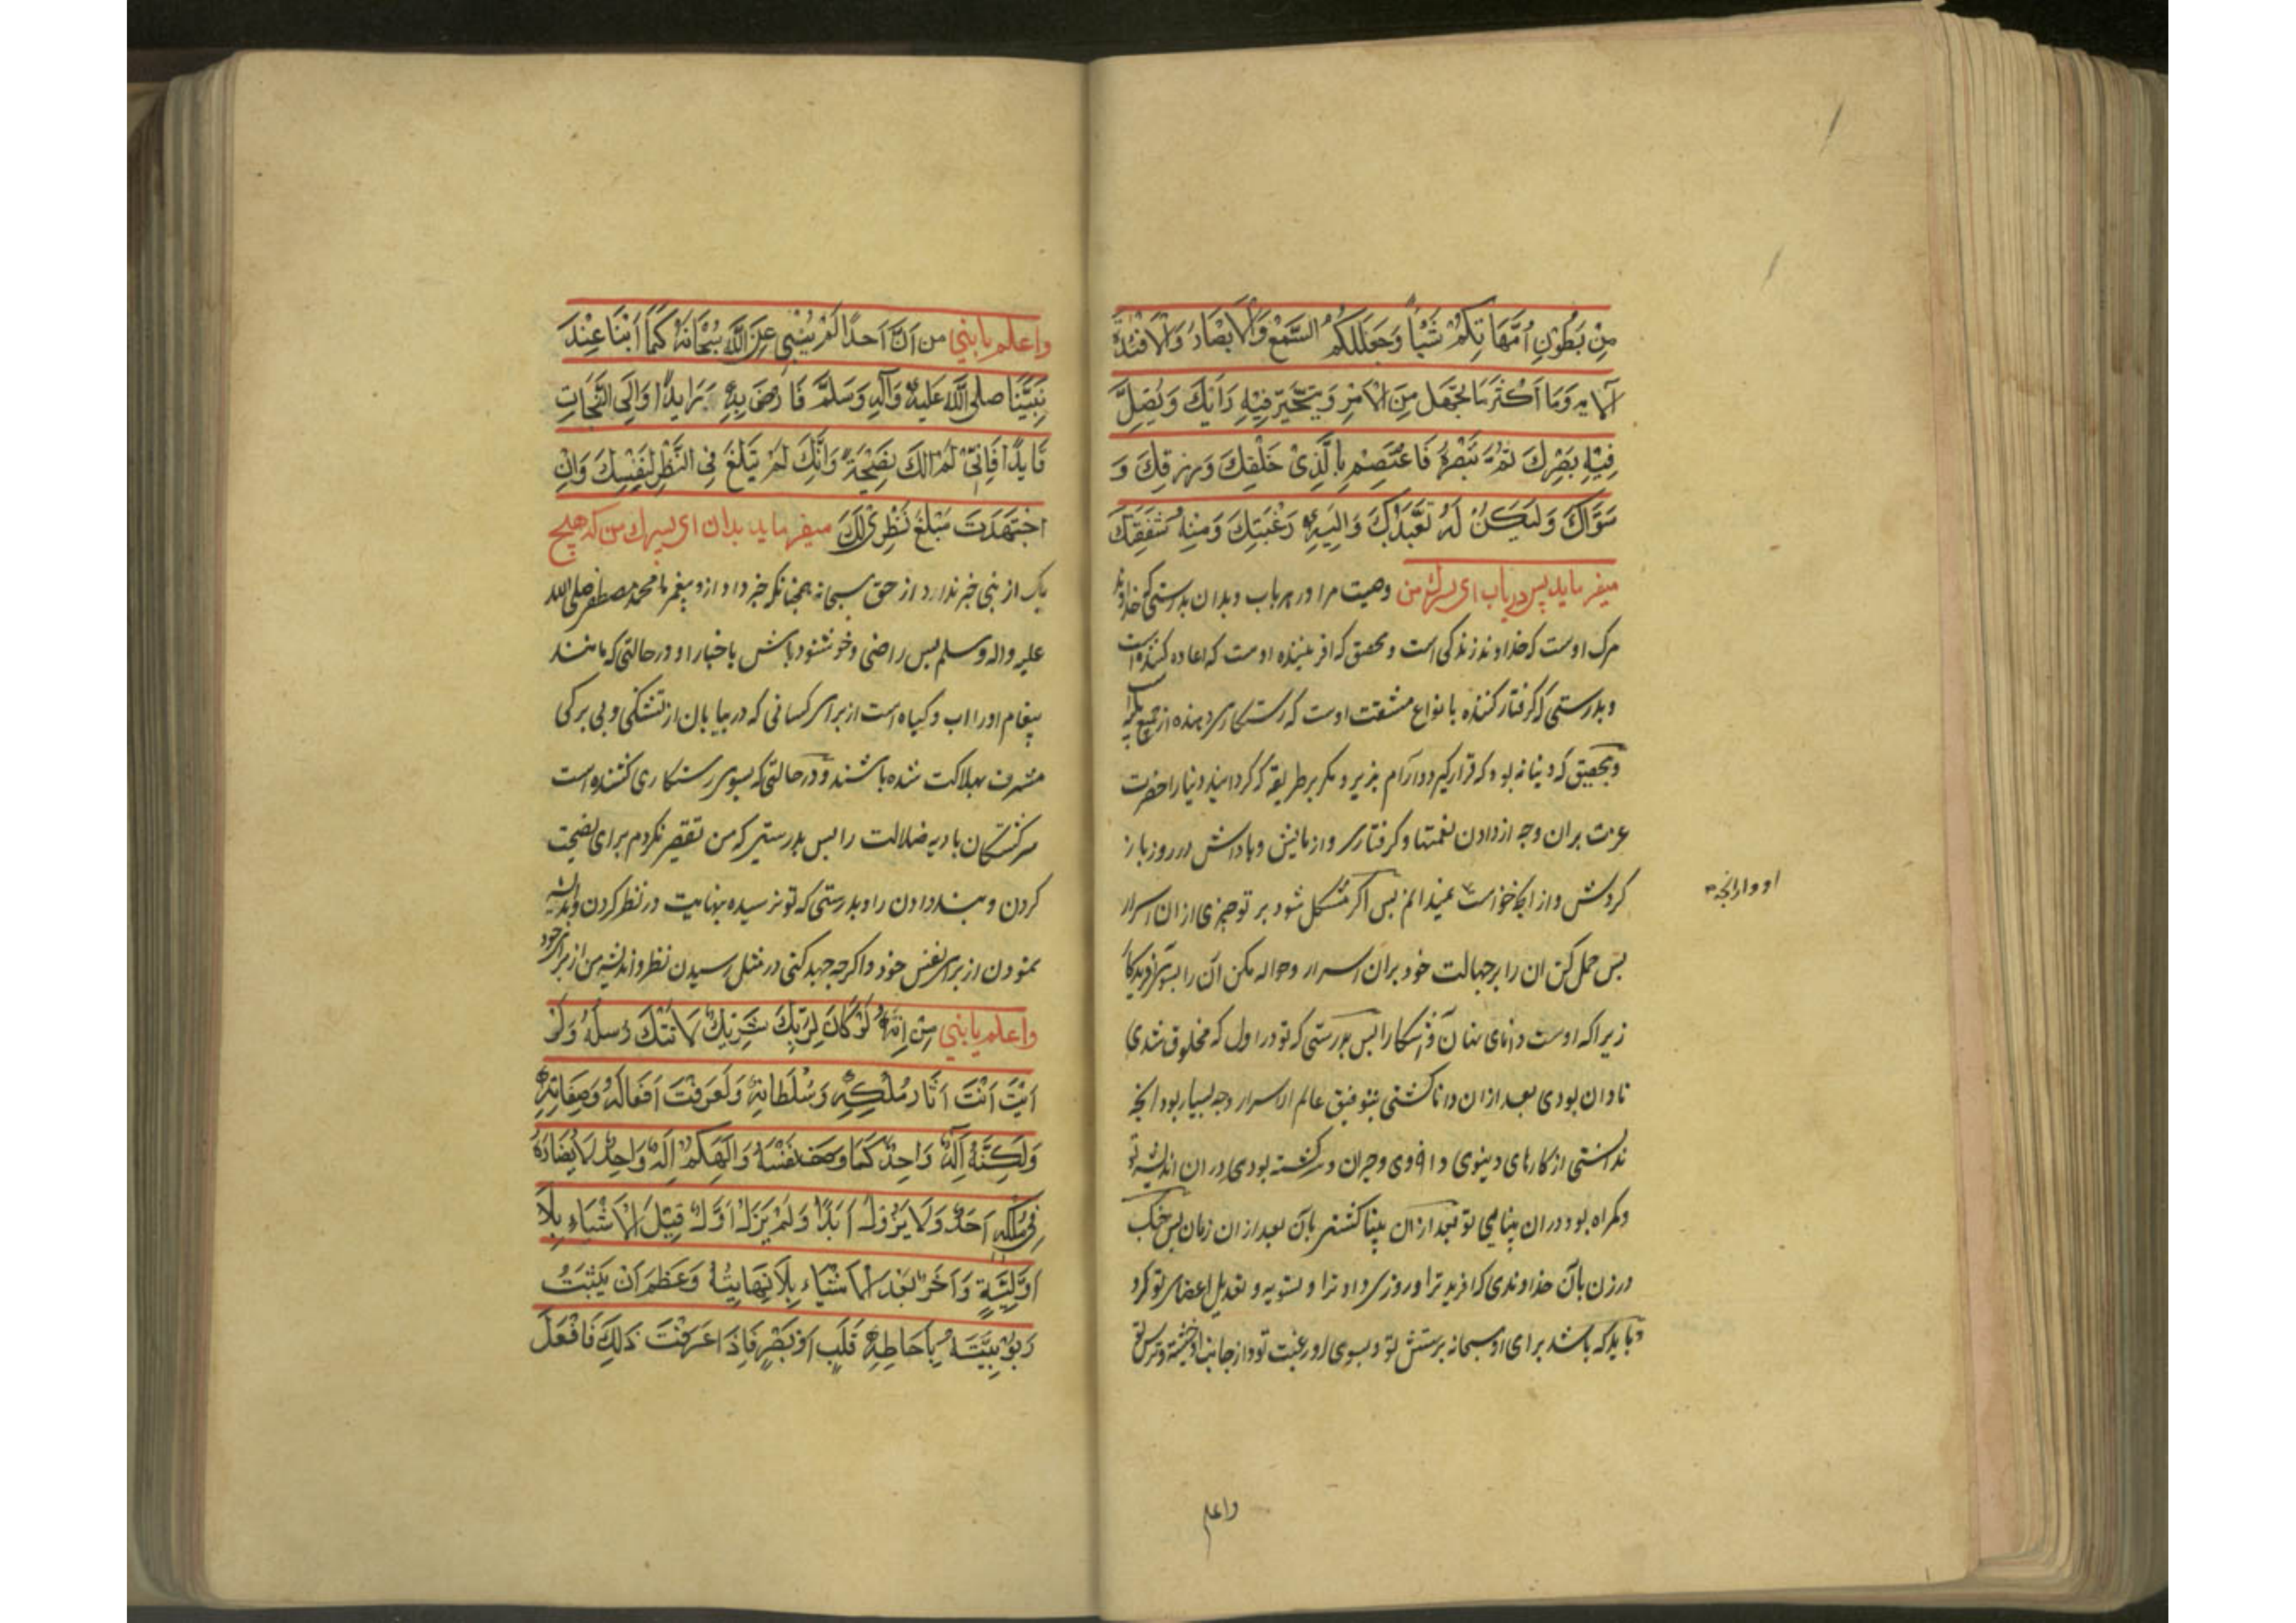 مِنْ بُطُونِ اُمَّهَاتِكُمْ شَيْئاً وَجَعَلَ لَكُمُ السَّمْعَ وَالْاَبْصَارَ وَالْاَفْئِدَةَ
الآيه وَمَا اَكْثَرَ مَا تَجْهَلُ مِنَ الْاَمْرِ وَيَتَحَيَّرُ فِيْهِ رَايُكَ وَيَضِلُّ
فِيْهِ بَصَرُكَ ثُمَّ تَبْصُرُهُ فَاعْتَصِمْ بِالَّذِىْ خَلَقَكَ وَرَزَقَكَ وَ
سَوَّاكَ وَلْيَكُنْ لَهُ تَعَبُّدُكَ وَاِلَيْهِ رَغْبَتُكَ وَمِنْهُ شَفَقَتُكَ
ميفرمايد پس درياب اى پسرك من وصيت مرا در هر باب و بدان بدرستى كه خداوند
مرك اوست كه خداوند زندكى است و محقق كه افريننده اوست كه اعاده كننده است
و بدرستى كه كرفتار كننده بانواع مشقت اوست كه رستكارى دهنده از جميع
و بتحقيق كه دنيا نه بود كه قرار كيرد و آرام پذيرد مكر بر طريقه كه كردانيد دنيا را حضرت
عزت بران وجه از دادن نعمتها و كرفتارى و ازمايش و پاداش در روز باز
كردش و از انچه خواست نميدانم پس اكر مشكل شود بر تو چيزى از ان اسرار
پس حمل كن ان را بر جهالت خود بران اسرار و حواله مكن آن را بسوى
زيرا كه اوست داناى نهان و آشكارا پس بدرستى كه تو در اول كه مخلوق شدى
نادان بودى بعد از ان دانا كشتى بتوفيق عالم الاسرار و چه بسيار بود انچه
ندانستى از كارهاى دينوى و اخروى و حيران و سركشته بودى در ان انديشه تو
و كمراه بود در ان بينايى تو بعد از ان بينا كشتى بآن بعد از ان زمان پس چنك
در زن بآن خداوندى كه افريد ترا و روزى داد ترا و بسويه و تعديل اعضاى تو كرد
و بايد كه باشد براى او سبحانه پرستش تو و بسوى او رغبت تو و از جانب او خشيت و ترس تو
واعلم
واعلم يا بنى من اَنَّ اَحَداً لَمْ يُنْبِئْ عَنِ اللّٰهِ سُبْحَانَهُ كَمَا اَنْبَاَ عَنْهُ
نَبِيُّنَا صلى اللّٰه عَلَيْهِ وَآلِهِ وَسَلَّمَ فَارْضَ بِهِ رَايِداً وَاِلَى النَّجَاتِ
قَايِداً فَاِنِّىْ لَمْ آلُكَ نَصِيْحَةً وَاِنَّكَ لَمْ تَبْلُغْ فِى النَّظَرِ لِنَفْسِكَ وَاِنِ
اجْتَهَدْتَ مَبْلَغَ نَظَرِىْ لَكَ ميفرمايد بدان اى پسرك من كه هيچ
يك از بنى خبر ندارد از حق سبحانه همچنانكه خبر داد از و پيغمبر ما محمد مصطفى صلى الله
عليه واله وسلم پس راضى و خوشنود باش باخبار او در حالتى كه مانند
پيغام اورا اب و كياه است از براى كسانى كه در بيابان از تشنكى و بى بركى
مشرف بهلاكت شده باشند و در حالتى كه بسوى رستكارى كشنده است
سركشتكان باديه ضلالت را پس بدرستى كه من تقصير نكردم براى نصيحت
كردن و پند دادن را و بدرستى كه تو نرسيده بنهايت در نظر كردن و انديشه
نمودن از براى نفس خود و اكرچه جهد كنى در مثل رسيدن نظر و انديشه من از براى خود
واعلم يا بنى مِنْ اَنَّهُ لَوْ كَانَ لِرَبِّكَ شَرِيْكٌ لَاَتَتْكَ رُسُلُهُ وَلَرَ
اَيْتَ اٰثَارَ مُلْكِهِ وَسُلْطَانِهِ وَلَعَرَفْتَ اَفْعَالَهُ وَصِفَاتِهِ
وَلَكِنَّهُ اِلٰهٌ وَاحِدٌ كَمَا وَصَفَ نَفْسَهُ وَاِلٰهُكُمْ اِلٰهٌ وَاحِدٌ لَا يُضَادُّهُ
فِىْ مُلْكِهِ اَحَدٌ وَلَا يَزُوْلُ اَبَداً وَلَمْ يَزَلْ اَوَّلٌ قَبْلَ الْاَشْيَاءِ بِلَا
اَوَّلِيَّةٍ وَآخَرٌ بَعْدَ الْاَشْيَاءِ بِلَا نِهَايَةٍ وَعَظُمَ اَنْ يَثْبُتَ
رَبُوْبِيَّتُهُ بِاِحَاطَةِ قَلْبٍ اَوْ بَصَرٍ فَاِذَا عَرَفْتَ ذٰلِكَ فَافْعَلْ